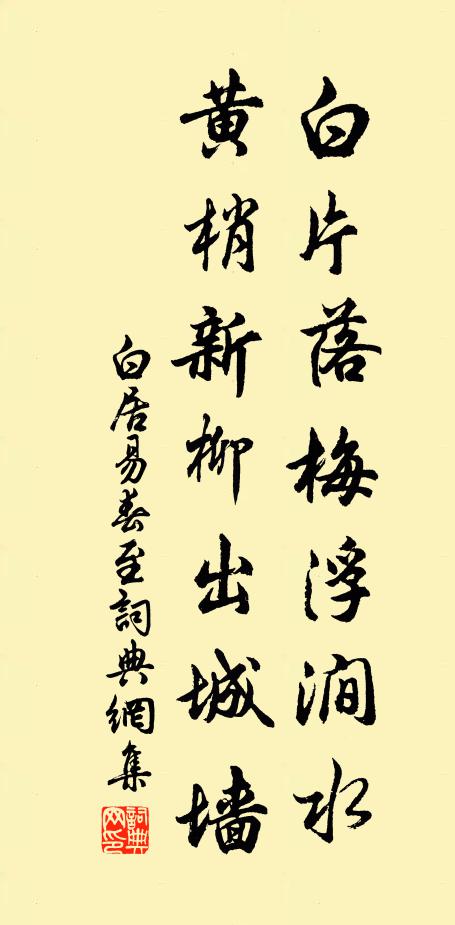 白片落梅浮澗水
黄梢新柳出城墙
白居易春至詞典網集
詞典网印